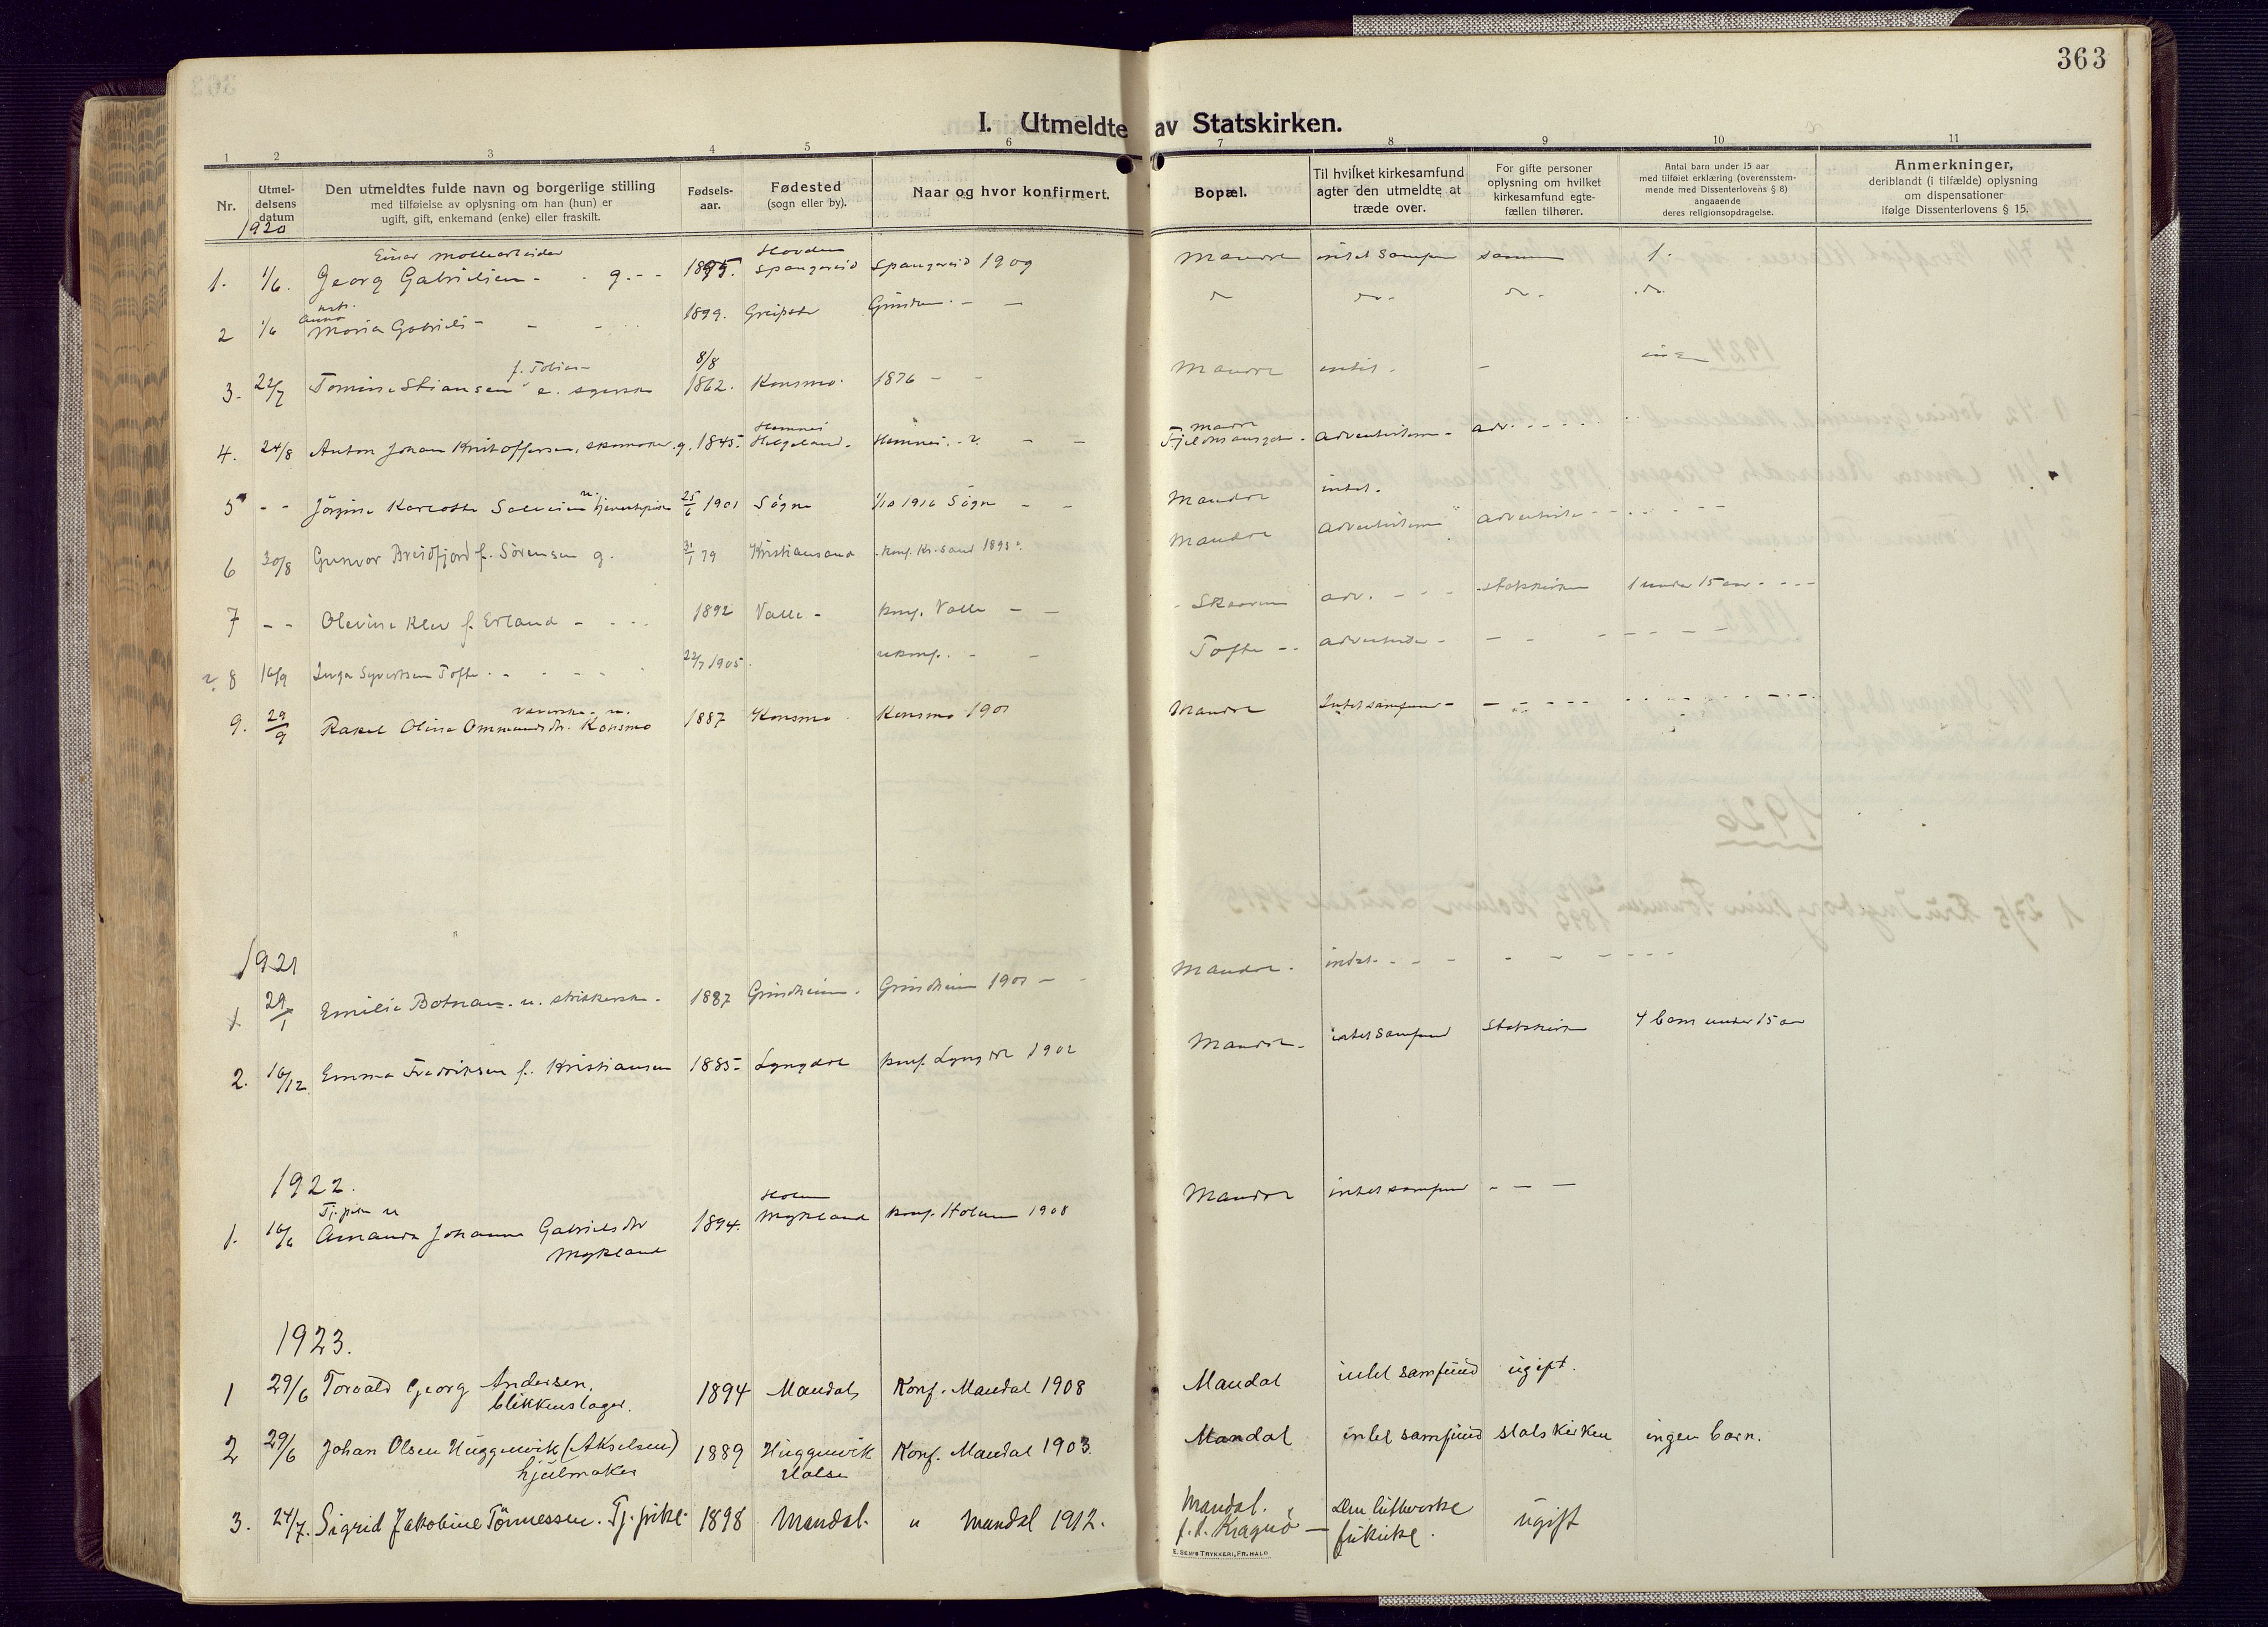 363
I. Utmeldte av Statskirken.
1 2 3 4 5 6 7 8 9 10 11
Nr.
Utmel-
delsens
datum
Den utmeldtes fulde navn og borgerlige stilling
med tilføielse av oplysning om han (hun) er
ugift, gift, enkemand (enke) eller fraskilt.
Fødsels-
aar.
Fødested
(sogn eller by).
Naar og hvor konfirmert.
Bopæl.
Til hvilket kirkesamfund
agter den utmeldte at
træde over.
For gifte personer
oplysning om hvilket
kirkesamfund egte-
fællen tilhører.
Antal barn under 15 aar
med tilføiet erklæring (overensstem-
mende med Dissenterlovens § 8)
angaaende
deres religionsopdragelse.
Anmerkninger,
deriblandt (i tilfælde) oplysning
om dispensationer
ifølge Dissenterlovens § 15.
1920
Einar
1. 1/6. Georg Gabrielsen - g. - - 1895. Spangereid Spangereid 1909 Mandal intet samfun samme 1.
Anna
2 1/6 Maria Gabriels - 1899. Greipstad - -
f. Tobias
8/8
3. 22/7 Tomine Stiansen e. 1862. Konsmo. 1876 - - Mandal intet. - ingen
Hemnes
Mandal
4. 24/8 Anton Johan Kristoffersen, skomaker. g. 1845 Helgeland. Hemnes. - - adventisterne - adv. - - -
5 - - Jörgine Karlotte Salvesen u. 25/6 1901 Søgne 1/10 1916 Søgne - - Mandal intet.
6 30/8 Gunvor Breidfjord f. Sörensen g. 31/1 79 Kristiansand konf. Kr.sand 1893 Mandal adventisterne adventist - - -
7 - - Olevine Klev f. Erland - 1892 Valle - konf. Valle - - Skaarun adv. - - - statskirken 1 under 15 aar - - -
8 16/9 Inga Syvertsen Tofte. - - 22/7 1905. ukonf. - - Tofte - - adventister - - -
9. 29/9 Rakel Oline Ommundsdtr. Konsmo 1887 Konsmo Konsmo 1901 Mandal Intet samfund - - - -
1921
1 29/1 Emilie Botnan. u. strikkerske. 1887 Grindheim. Grindheim 1901 - Mandal. intet. - - -
2. 16/12 Emma Fredriksen f. Kristiansen 1885 Lyngdal konf. Lyngdal 1902 Mandal. intet samfund Statskirken 4 barn under 15 aar
1922.
Tj. pike u Holum
1. 16/6 Amanda Johanne Gabrielsdtr 1894. Mykland konf. Holum 1908 Mandal intet samfund - - -
Mykland
1923.
1 29/6 Torvald Georg Andersen. 1894 Mandal Konf. Mandal 1908 Mandal intet samfund ugift.
blikkenslager.
2 29/6 Johan Olsen Huggenvik (Akselsen) 1889 Huggenvik Konf. Mandal 1903. Mandal intet samfund statskirken ingen barn.
hjulmaker Halse
3. 24/7. Sigrid Jakobine Tönnessen. Tj. pike. 1898 Mandal. " Mandal 1912. Mandal. Den lutherske ugift
f. t. Kragerö - frikirke.
E. SEM'S TRYKKERI, FR.HALD